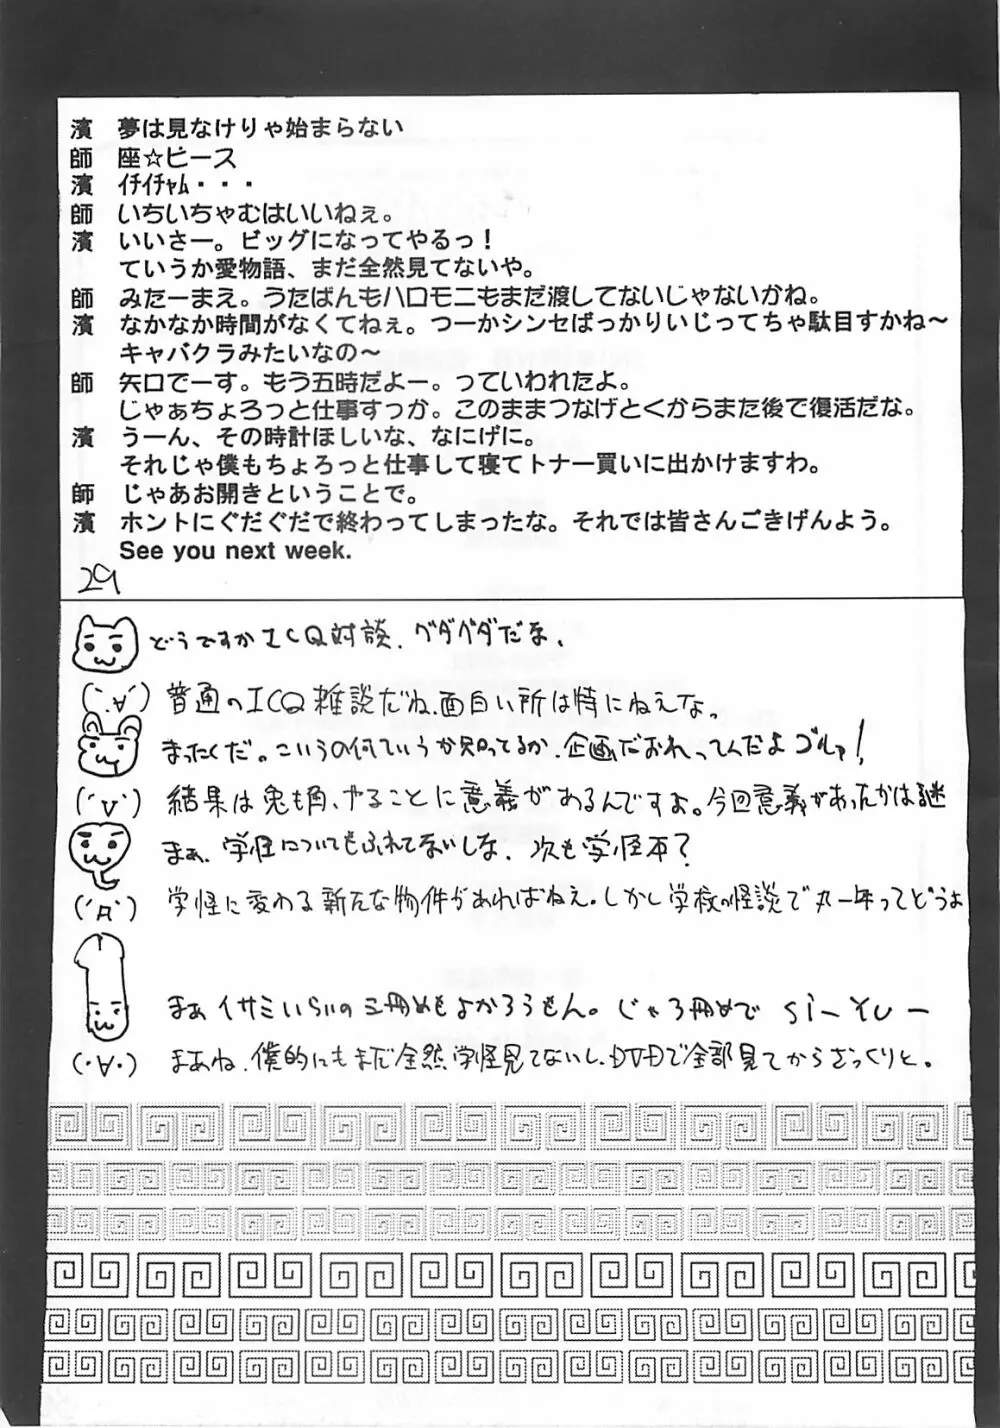 濱　夢は見なけりゃ始まらない
師　座☆ピース
濱　ｲﾁｲﾁｬﾑ・・・
師　いちいちゃむはいいねぇ。
濱　いいさー。ビッグになってやるっ！
ていうか愛物語、まだ全然見てないや。
師　みたーまえ。うたばんもハロモニもまだ渡してないじゃないかね。
濱　なかなか時間がなくてねぇ。つーかシンセばっかりいじってちゃ駄目すかね～
キャバクラみたいなの～
師　矢口でーす。もう五時だよー。っていわれたよ。
じゃぁちょろっと仕事すっか。このままつなげとくからまた後で復活だな。
濱　うーん、その時計ほしいな、なにげに。
それじゃ僕もちょろっと仕事して寝てトナー買いに出かけますわ。
師　じゃあお開きということで。
濱　ホントにぐだぐだで終わってしまったな。それでは皆さんごきげんよう。
See you next week.
29
どうですかICQ対談、グダグダだな、
(´∀`) 普通のICQ雑談だね、面白い所は特にねえな。
まったくだ。こいうの何ていうか知ってるか、企画だおれってんだよゴルァ!
(´∀`) 結果は兎も角、やることに意義があるんですよ。今回意義があったかは謎
まぁ、学怪についてもふれてないしな、次も学怪本?
(´Д`) 学怪に変わる新たな物件があればねえ。しかし学校の怪談で丸一年ってどうよ
まぁイサミいらいの三冊めもよかろうもん。じゃ3冊めで si-yu-
(・∀・) まあね、僕的にもまだ全然学怪見てないし、DVDで全部見てからざっくりと。